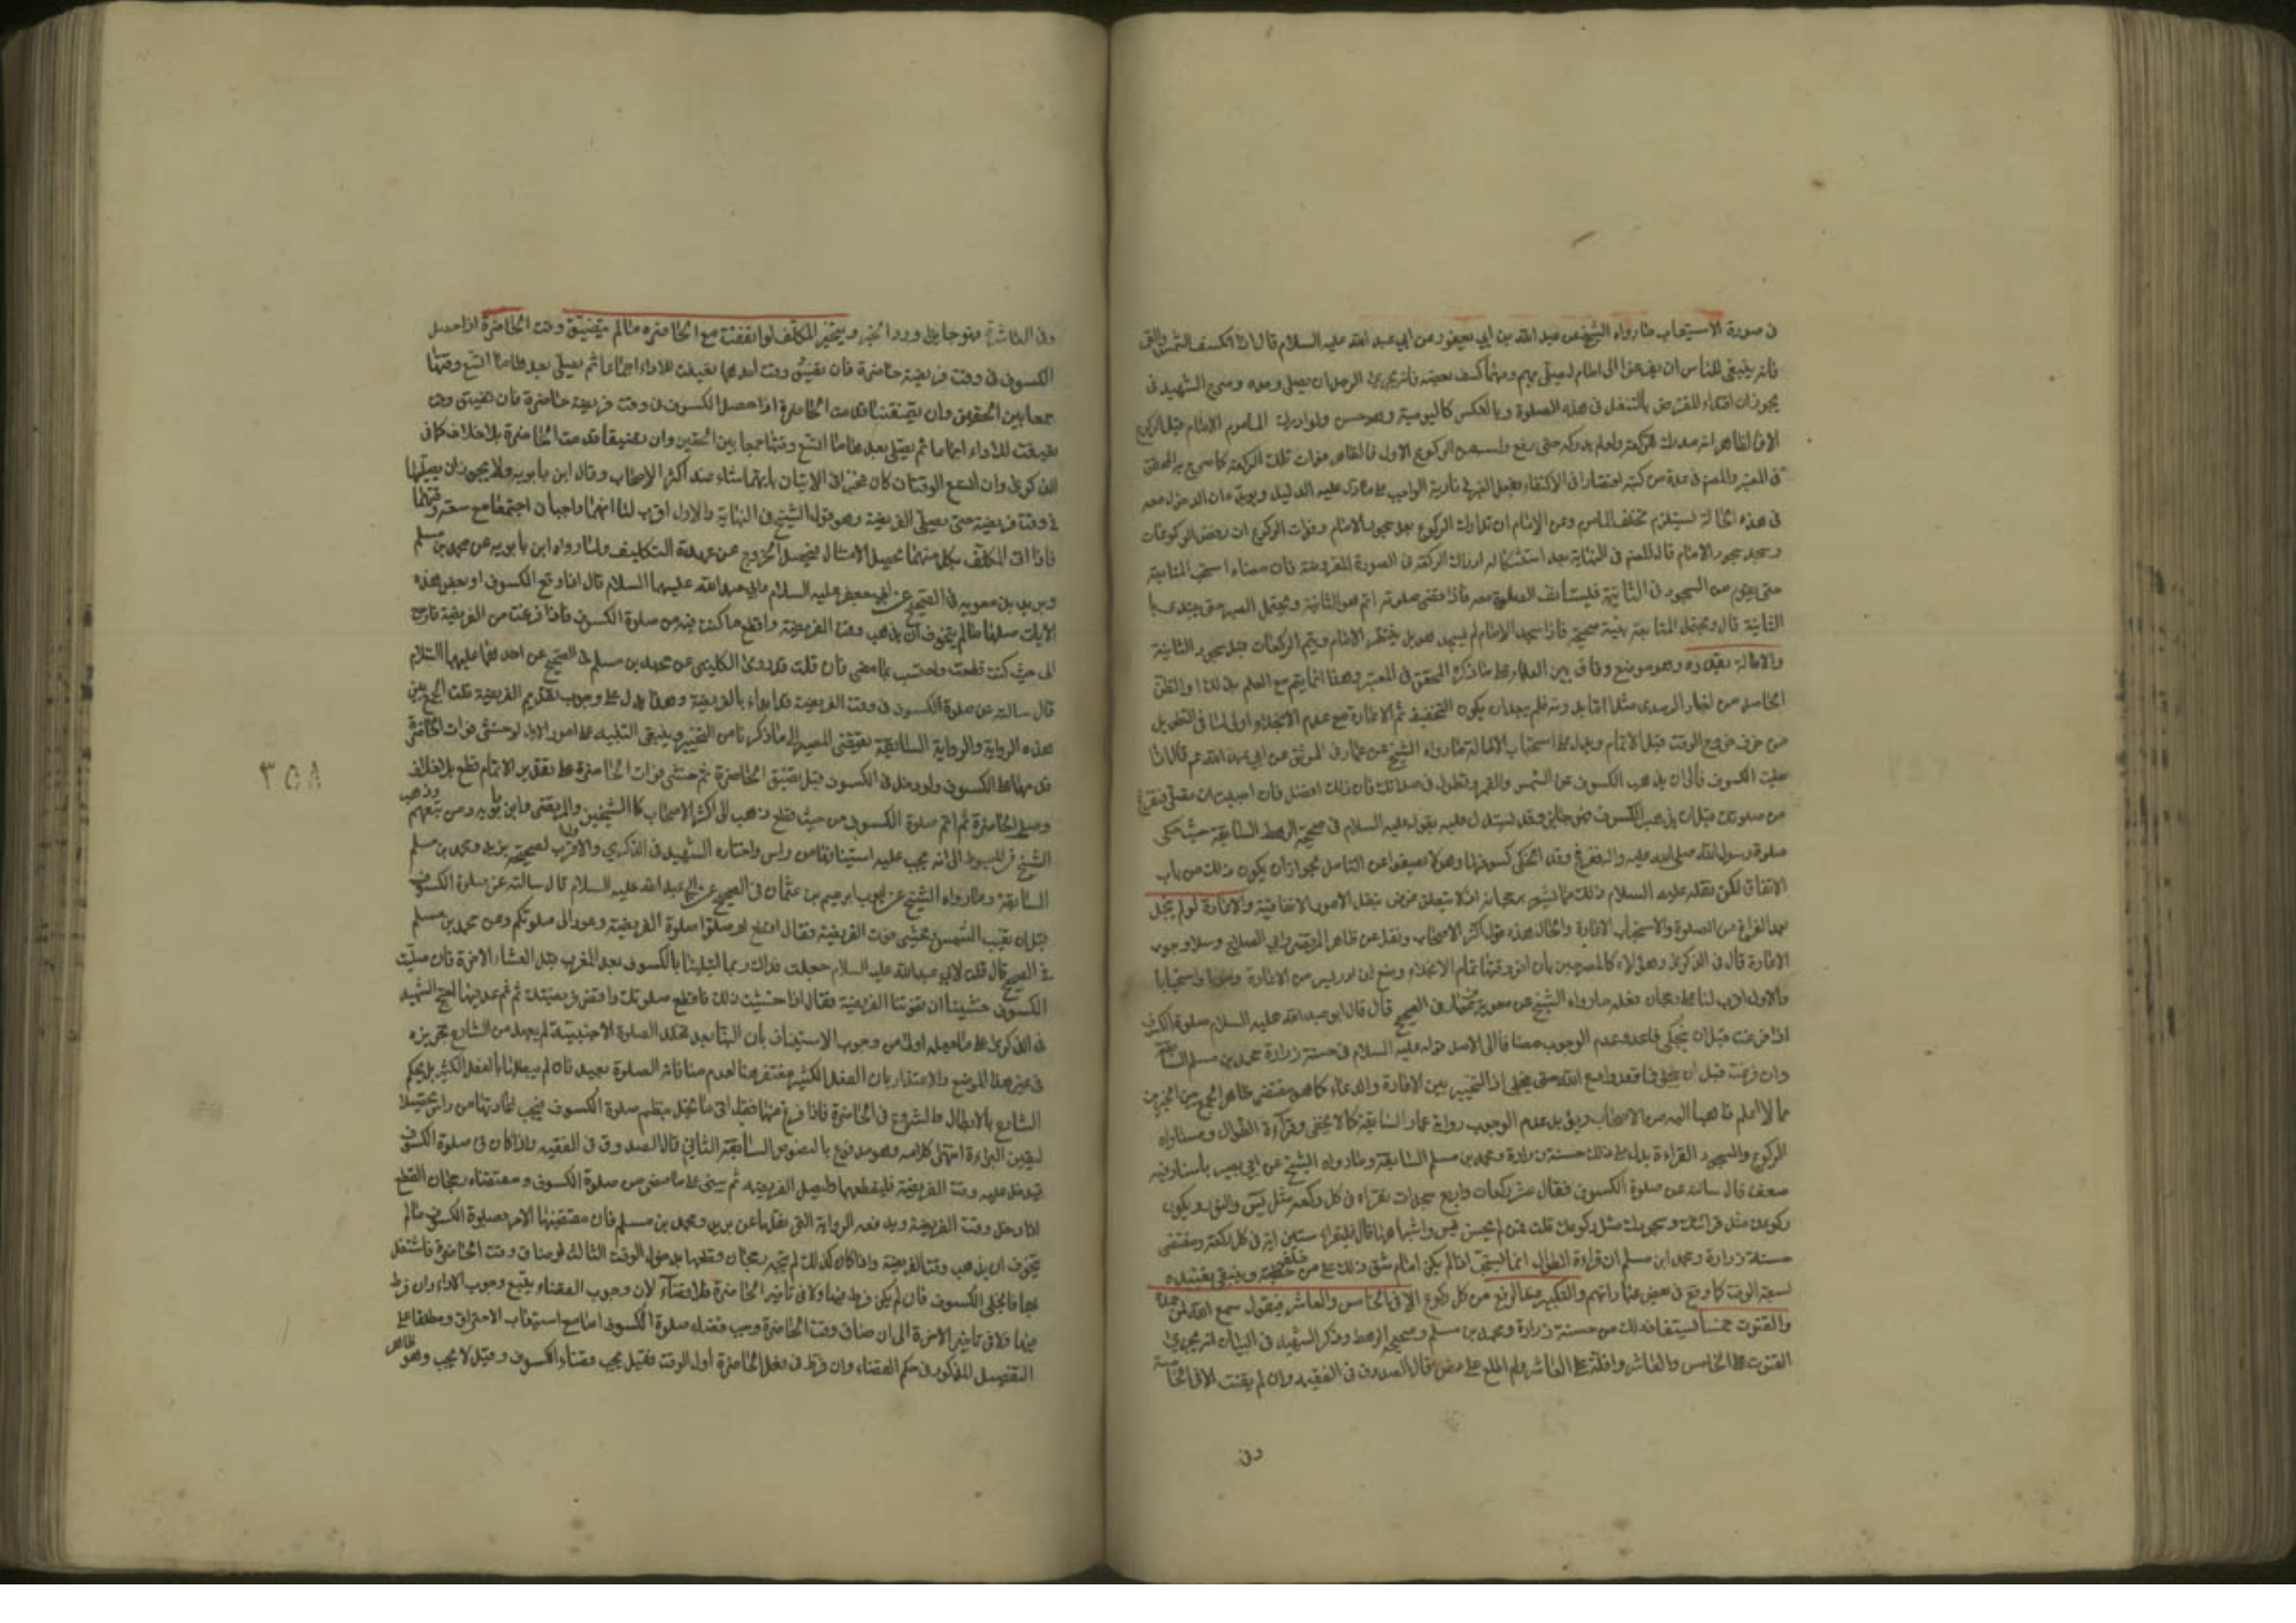 في صورة الاستيعاب ما رواه الشيخ عن عبد الله بن ابي يعفور عن ابي عبد الله عليه السلام قال اذا انكسفت الشمس والقمر
فانه ينبغي للناس ان يفزعوا الى امام يصلي بهم وايهما كسف بعضه فانه يجزي الرجل ان يصلي وحده ومنع الشهيد في
يجوز ان اقتداء المفترض بالمتنفل في هذه الصلوة وبالعكس كاليومية وهو حسن ولو ادرك المأموم الامام قبل الركوع
الاول فالظاهر انه مدرك للركعة ولو لم يدركه حتى رفع راسه من الركوع الاول فالظاهر فوات تلك الركعة كما صرح به المحقق
في المعتبر والمصنف في عدة من كتبه اقتصارا في الاكتفاء بفعل الغير في تأدية الواجب على ما دل عليه الدليل ويؤيده ان الدخول معه
في هذه الحالة يستلزم تخلف المأموم عن الامام ان تدارك الركوع بعد سجود الامام وفوات الركوع ان رفض الركوعات
وسجد بسجود الامام قال المصنف في النهاية بعد استشكاله ادراك الركعة في الصورة المفروضة فان منعناه استحب المتابعة
حتى يقوم من السجود في الثانية فيستأنف الصلوة معه فاذا قضى صلوته اتم هو الثانية ويحتمل الصبر حتى يبتدي با
الثانية قال ويحتمل المتابعة بنية صحيحة فاذا سجد الامام لم يسجد هو بل ينتظر الامام ويتم الركعات قبل سجود الثانية
والاطالة بقدره وهو موضع وفاق بين العلماء على ما ذكره المحقق في المعتبر وهذا انما يتم مع العلم بذلك او الظن
الحاصل من اخبار الرصدي مثلا اما بدونه فلم يبعد ان يكون التخفيف ثم الاعادة مع عدم الانجلاء اولى لما في التطويل
من خوف خروج الوقت قبل الاتمام ويدل على استحباب الاطالة ما رواه الشيخ عن عمار في الموثق عن ابي عبد الله ع قال اذا
صليت الكسوف فالى ان يذهب الكسوف عن الشمس والقمر وتطول في صلاتك فان ذلك افضل فان احببت ان تصلي فتفرغ
من صلوتك قبل ان يذهب الكسوف فهو جائز وقد يستدل عليه بقوله عليه السلام في صحيحة الرهط السابقة حيث حكى
صلوة رسول الله صلى الله عليه وآله ففرغ وقد انجلى كسوفها وهو لا يصفو عن التأمل لجواز ان يكون ذلك من باب
الاتفاق لكن نقله عليه السلام ذلك مما يشعر برجحانه اذ لا يتعلق غرض بنقل الامور الاتفاقية والاعادة لو لم ينجل
بعد الفراغ من الصلوة والاستحباب الاعادة والحال هذه قول اكثر الاصحاب ونقل عن ظاهر المرتضى وابي الصلاح وسلار وجوب
الاعادة قال في الذكرى وهؤلاء كالمصرحين بان اخر وقتها تمام الانجلاء ومنع ابن ادريس من الاعادة وجوبا واستحبابا
والاول اقرب لنا على رجحان فعله ما رواه الشيخ عن معوية بن عمار في الصحيح قال قال ابو عبد الله عليه السلام صلوة الكسوف
اذا فرغت قبل ان ينجلي فاعد وعدم الوجوب مضافا الى الاصل قوله عليه السلام في حسنة زرارة ومحمد بن مسلم السابقة
وان فرغت قبل ان ينجلي فاقعد وادع الله حتى ينجلي اذ التخيير بين الاعادة والدعاء كما هو مقتضى ظاهر الجمع بين الخبرين
مما لا اعلم ذاهبا اليه من الاصحاب ويؤيد عدم الوجوب رواية عمار السابقة كما لا يخفى وقراءة الطوال ومساواة
الركوع والسجود القراءة يدل على ذلك حسنة زرارة ومحمد بن مسلم السابقة وما رواه الشيخ عن ابي بصير باسناد فيه
ضعف قال سالته عن صلوة الكسوف فقال عشر ركعات واربع سجدات تقراء في كل ركعة مثل يس والنور ويكون
ركوعك مثل قرائتك وسجودك مثل ركوعك قلت فمن لم يحسن يس واشباهها قال فليقراء ستين اية في كل ركعة ومقتضى
حسنة زرارة ومحمد ابن مسلم ان قراءة الطوال انما يستحب اذا لم يكن امام شق ذلك على من خلفه وينبغي تقييده
لسعة الوقت كما وقع في بعض عباراتهم والتكبير عند الرفع من كل ركوع الا في الخامس والعاشر فيقول سمع الله لمن حمده
والقنوت خمسا يستفاد ذلك من حسنة زرارة ومحمد بن مسلم وصحيحة الرهط وذكر الشهيد في البيان انه يجزي
القنوت على الخامس والعاشر واقله على العاشر ولم اطلع على نص قال الصدوق في الفقيه وان لم يقنت الا في الخامسة
وفي
وفي العاشرة فهو جايز لورود الخبر ويتخير المكلف لو اتفقت مع الحاضرة ما لم يتضيق وقت الحاضرة اذا حصل
الكسوف في وقت فريضة حاضرة فان تضيق وقت احدهما تعينت للاداء اجماعا ثم يصلي بعدها ما اتسع وقتها
جمعا بين الحقين وان تضيقتا قدمت الحاضرة اذا حصل الكسوف في وقت فريضة حاضرة فان تضيق وقت
تعينت للاداء اجماعا ثم يصلي بعدها ما اتسع وقتها جمعا بين الحقين وان تضيقتا قدمت الحاضرة بلا خلاف كما في
الذكرى وان اتسع الوقتان كان مخيرا في الاتيان بايهما شاء عند اكثر الاصحاب وقال ابن بابويه ولا يجوز ان يصليها
في وقت فريضة حتى يصلي الفريضة وهو قول الشيخ في النهاية والاول اقرب لنا انهما واجبان اجتمعا مع سعة وقتهما
فاذا اتى المكلف بكل منهما يحصل الامتثال فيحصل الخروج عن عهدة التكليف ولما رواه ابن بابويه عن محمد بن مسلم
وبريد بن معوية في الصحيح عن ابي جعفر عليه السلام وابي عبد الله عليهما السلام قال اذا وقع الكسوف او بعض هذه
الايات صليتها ما لم يتخوف ان يذهب وقت الفريضة واقطع ما كنت فيه من صلوة الكسوف فاذا فرغت من الفريضة فارجع
الى حيث كنت قطعت واحتسب بما مضى فان قلت قد روى الكليني عن محمد بن مسلم في الصحيح عن احدهما عليهما السلام
قال سالته عن صلوة الكسوف في وقت الفريضة فقال ابداء بالفريضة وهذا يدل على وجوب تقديم الفريضة قلت الجمع بين
هذه الرواية والرواية السابقة يقتضي المصير الى ما ذكرنا من التخيير وينبغي التنبيه على امور الاول لو خشي فوات الحاضرة
قدمها على الكسوف ولو دخل في الكسوف قبل تضيق الحاضرة ثم خشي فوات الحاضرة على تقدير الاتمام قطع بلا خلاف
وصلى الحاضرة ثم اتم صلوة الكسوف من حيث قطع ذهب الى اكثر الاصحاب كالشيخين والمرتضى وابن بابويه ومن تبعهم وذهب
الشيخ في المبسوط الى انه يجب عليه استينافها من راس واختاره الشهيد في الذكرى والاقرب لصحيحة بريد ومحمد بن مسلم
السابقة وما رواه الشيخ عن ابي ايوب ابرهيم بن عثمان في الصحيح عن ابي عبد الله عليه السلام قال سالته عن صلوة الكسوف
قبل ان تغيب الشمس ونخشى فوت الفريضة فقال اقطعوا وصلوا صلوة الفريضة وعودوا الى صلوتكم وعن محمد بن مسلم
في الصحيح قال قلت لابي عبد الله عليه السلام جعلت فداك ربما ابتلينا بالكسوف بعد المغرب قبل العشاء الاخرة فان صليت
الكسوف خشينا ان تفوتنا الفريضة فقال اذا خشيت ذلك فاقطع صلوتك واقض فريضتك ثم عد فيها احتج الشهيد
في الذكرى على ما نقل اولا من وجوب الاستيناف بان البناء بعد تخلل الصلوة الاجنبية لم يعهد من الشارع تجويزه
في غير هذا الموضع والاعتذار بان الفعل الكثير مغتفر هنا لعدم منافاته الصلوة بعيد فانا لم نبطلها بالفعل الكثير بل بحكم
الشارع بالابطال والشروع في الحاضرة فاذا فرغ منها فقد اتى ما يخل بنظم صلوة الكسوف فيجب اعادتها من راس تحصيلا
ليقين البراءة انتهى كلامه وهو مدفوع بالنصوص السابقة الثاني قال الصدوق في الفقيه واذا كان في صلوة الكسوف
فدخل عليه وقت الفريضة فليقطعها وليصل الفريضة ثم يبني على ما مضى من صلوة الكسوف ومقتضاه رجحان القطع
اذا دخل وقت الفريضة ويدفعه الرواية التي نقلها عن بريد ومحمد بن مسلم فان مقتضيها الامر بصلوة الكسوف ما لم
يتخوف ان يذهب وقت الفريضة واذا كان كذلك لم يتجه رجحان قطعها بدخول الوقت الثالث لو ضاق وقت الحاضرة فاشتغل
بها فانجلى الكسوف فان لم يكن فرط فيها ولا في تاخير الحاضرة فلا قضاء لان وجوب القضاء يتبع وجوب الاداء وان فرط
فيها لا في تاخير الاخرة الى ان ضاق وقت الحاضرة وجب قضاء صلوة الكسوف اما مع استيعاب الاحتراق ومطلقا على
التفصيل المذكور في حكم القضاء وان فرط في فعل الحاضرة اول الوقت فقيل يجب قضاء الكسوف وقيل لا يجب وهو ظاهر
٣٥٨